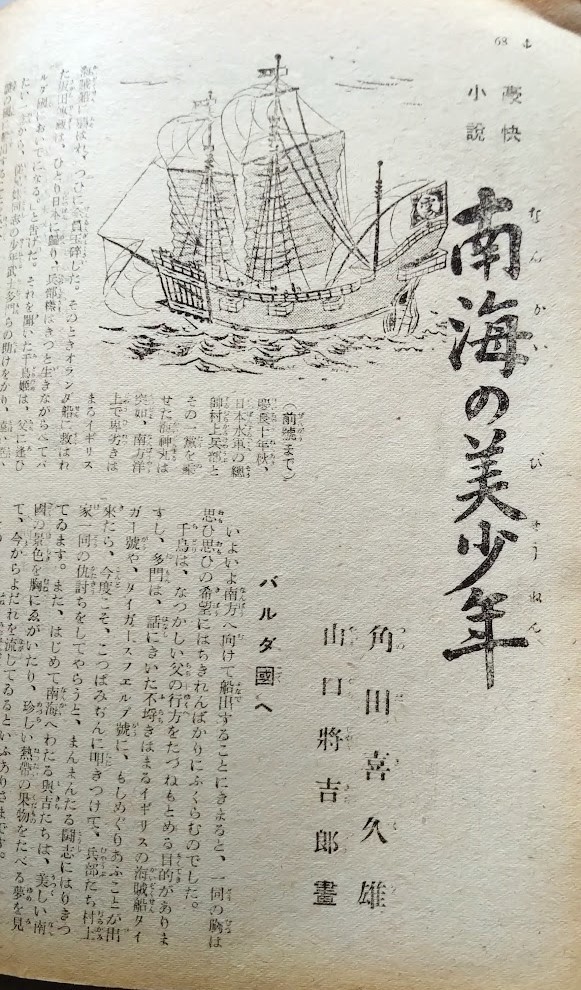 63
豪快
小說
南海の美少年
なんかい びせうねん
角田喜久雄
山口將吉郎畫
(前號まで)
慶長十年秋、
日本水軍の總
帥村上兵部と
その一黨を乘
せた海神丸は
突如、南方洋
上で卑劣きは
まるイギリス
海賊船に襲はれ、つひに全員玉碎した。そのときオランダ船に救はれ
バルダ國へ
いよいよ南方へ向けて船出することにきまると、一同の胸は
思ひ思ひの希望にはちきれんばかりにふくらむのでした。
千鳥は、なつかしい父の行方をたづねもとめる目的がありま
すし、多門は、話にきいた不埓きはまるイギリスの海賊船タイ
ガー號や、タイガースフエルプ號に、もしめぐりあふことが出
來たら、今度こそ、こつぱみぢんに叩きつけて、兵部たち村上
家一同の仇討ちをしてやらうと、まんまんたる鬪志にはりきつ
てゐます。また、はじめて南海へわたる與吉たちは、美しい南
國の景色を胸にゑがいたり、珍しい熱帶の果物をたべる夢を見
て、今からよだれを流してゐるといふありさまです。